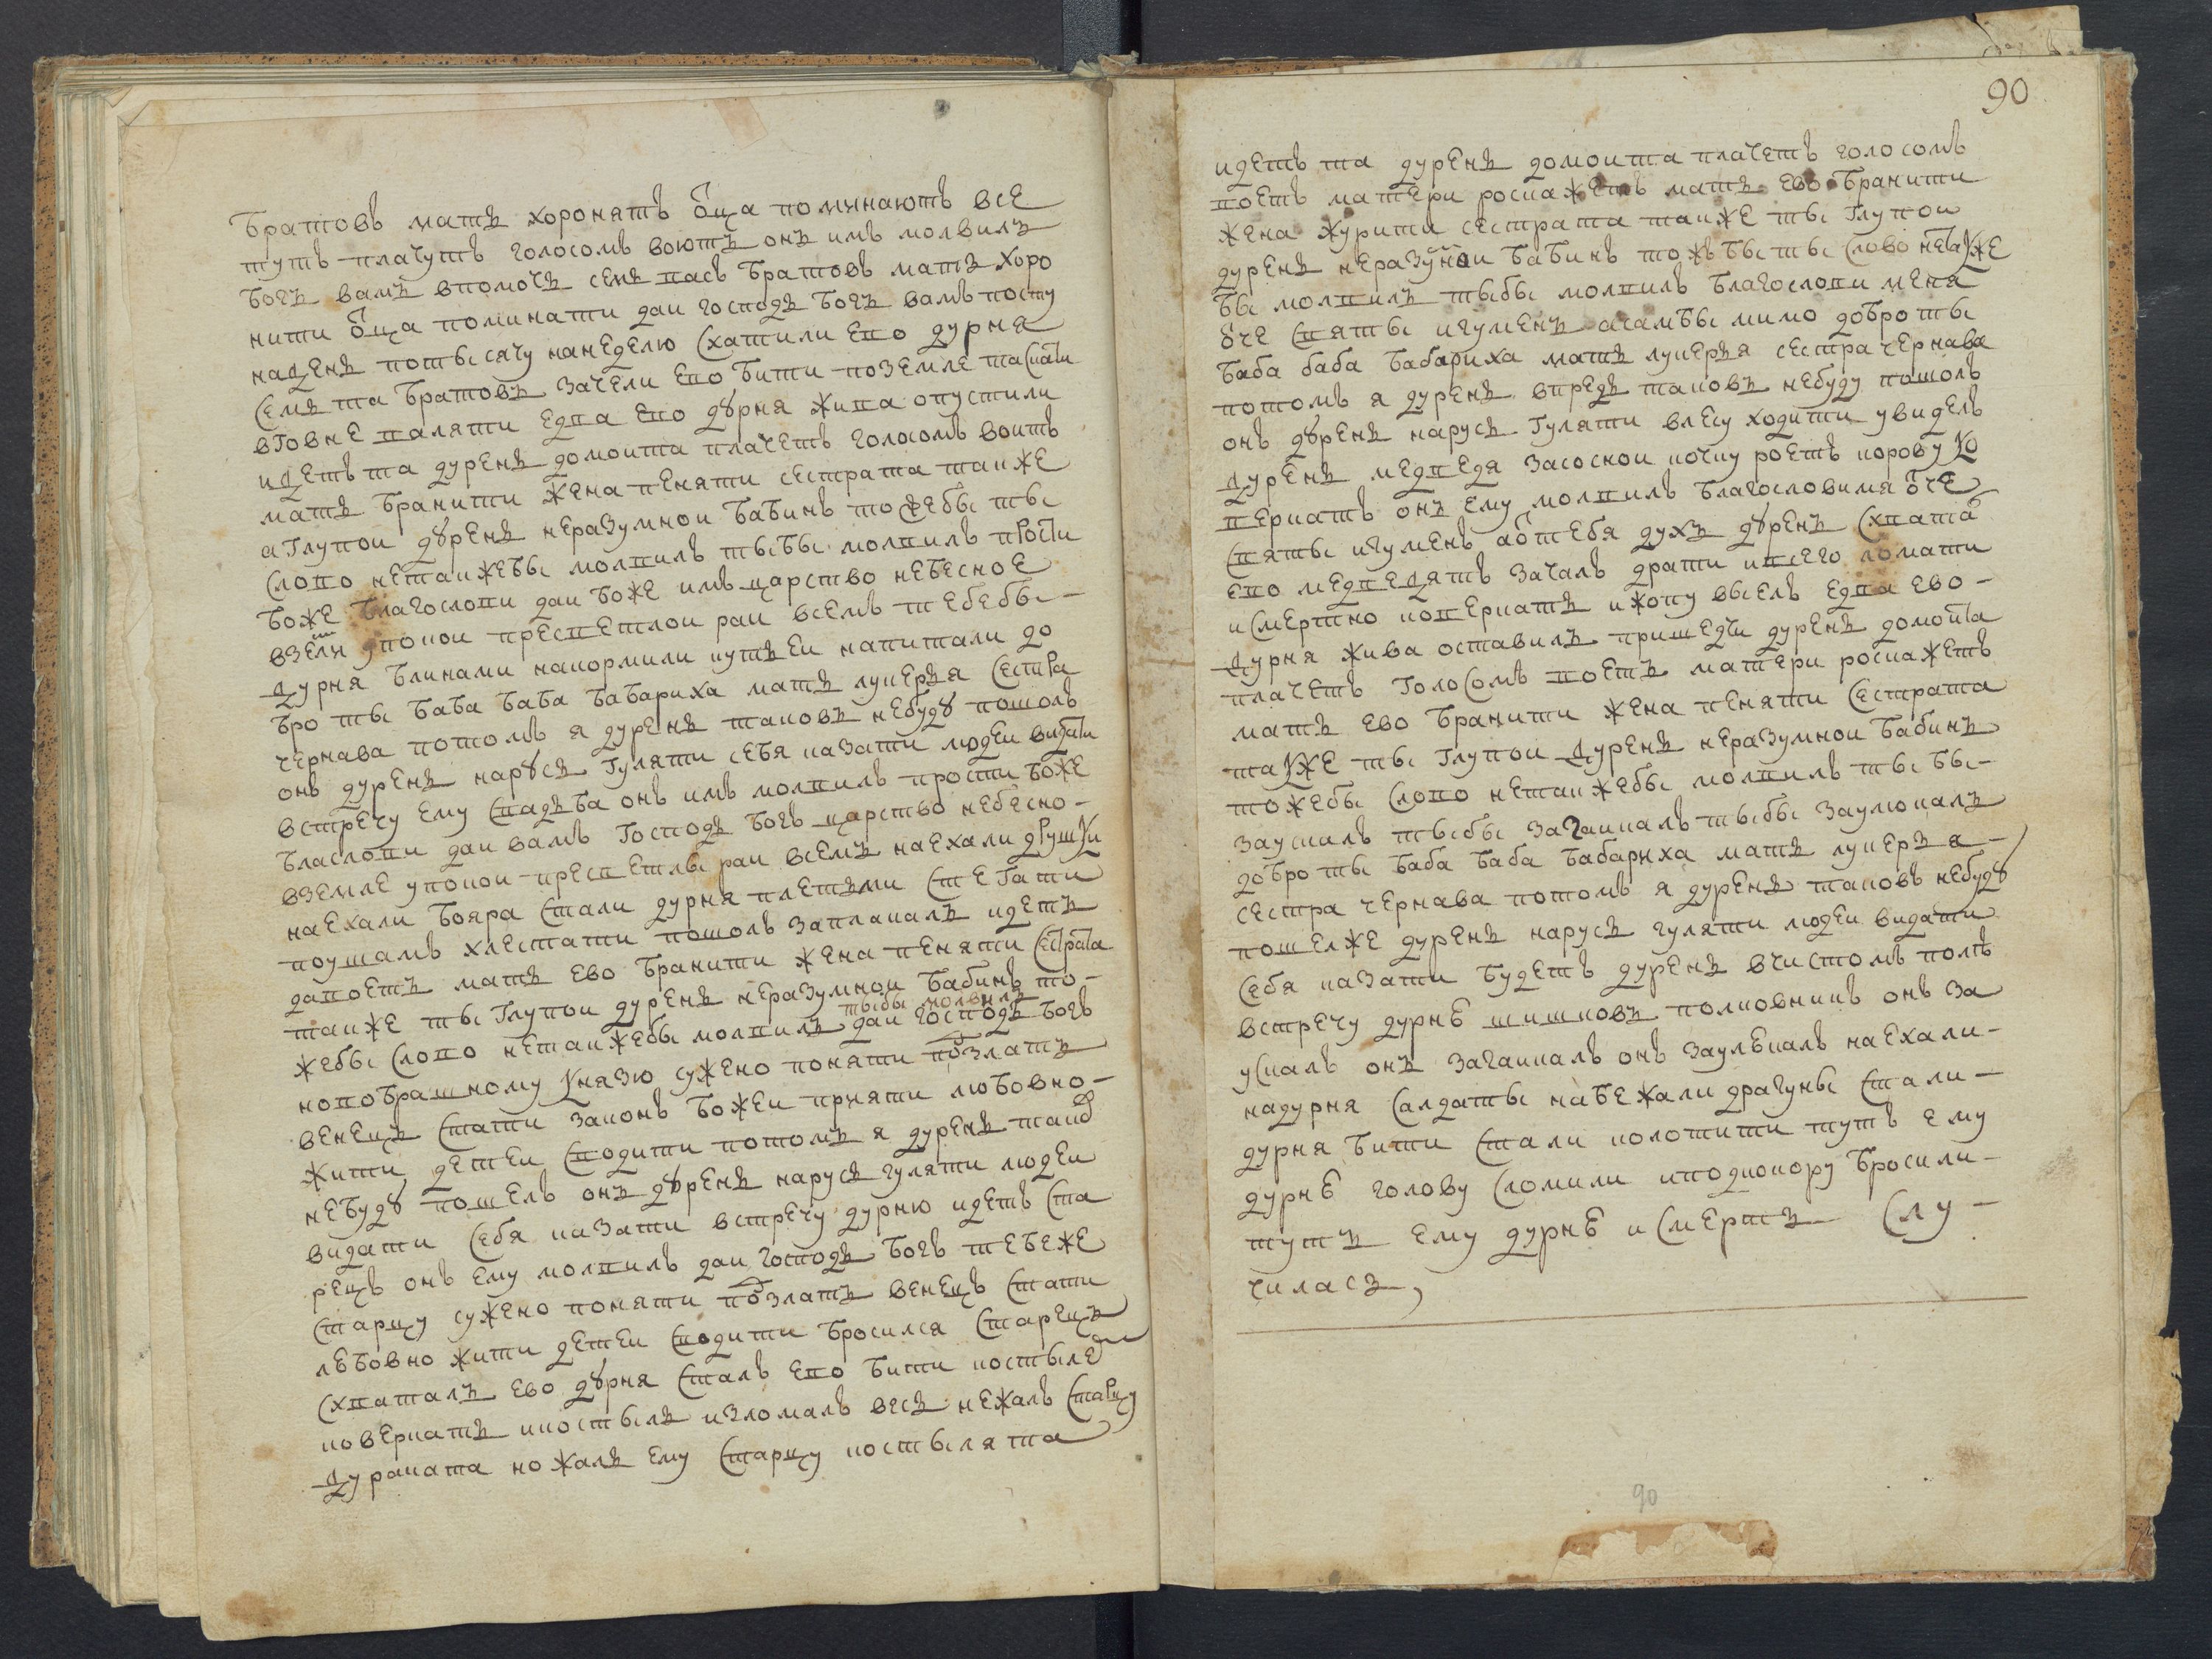 братовъ мать хоронятъ оца поминаютъ все
тутъ плачутъ голосомъ воютъ онъ имъ молвилъ
богъ вамъ впомочь семь васъ братовъ мать хоро
нити оца поминати даи господь богъ вамъ посту
надень потысячу нанеделю схатили ево дурня
семь та братовъ зачели ево бити поземле таскати
вговне валяти едва ево дꙋрня жива опустили
идетъ та дурень домоита плачетъ голосомъ воитъ
мать бранити жена пеняти сестрата также
а глупои дꙋрень неразумнои бабинъ тожебы ты
слово нетакжебы молвилъ тыбы молвилъ прости
боже благослови даи боже имъ царство небесное
вземли упокои пресветлои раи всемъ тебебы
дурня блинами накормили кутьеи напитали до
бро ты баба баба бабариха мать лукерья сестра
чернава потомъ я дурень таковъ небудꙋ пошолъ
онъ дурень нарꙋсь гуляти себя казати людеи видати
встречу ему свадьба онъ имъ молвилъ прости боже
бласлови даи вамъ господь богъ царство небесно
вземле упокои пресветлы раи всемъ наехали друшки
наехали бояра стали дурня плетьми стегати
поушамъ хлестати пошолъ заплакалъ идетъ
давоетъ мать ево бранити жена пеняти сестрата
также ты глупои дурень неразумнои бабинъ то
тыбы молвилъ
жебы слово нетакжебы молвилъ даи господь богъ
новобрашному князю сужено поняти подзлатъ
венецъ стати законъ божеи прняти любовно
жити детеи сводити потомъ я дурень таков
небудꙋ пошелъ онъ дꙋрень нарусь гуляти людеи
видати себя казати встречу дурню идетъ ста
рецъ онъ ему молвилъ даи господь богъ тебеже
старцу сужено поняти подзлатъ венецъ стати
лѣбовно жити детеи сводити бросился старецъ
схваталъ ево дꙋрня сталъ ево бити костылем
коверкать икостыль изломалъ весь нежаль старцу
дураката но жаль ему старцу костылята
90
идетъ та дурень домоита плачетъ голосомъ
воетъ матери роскажетъ мать ево бранити
жена журити сестрата также ты глупои
дурень неразумнои бабинъ тожъбы ты слово нетакже
бы молвилъ тыбы молвилъ благослови меня
отче святы игуменъ асамбы мимо добро ты
баба баба бабариха мать лукерья сестра чернава
потомъ я дурень впредь таковъ небуду пошолъ
онъ дꙋрень нарусь гуляти влесу ходити увиделъ
дурень медведя засоснои кочку роетъ корову ко
веркатъ онъ ему молвилъ благословимя отче
святы игуменъ а отебя духъ дꙋрень схватал
ево медведять зачалъ драти ивсего ломати
исмертно коверкать ижопу выелъ едва ево
дурня жива оставилъ пришедчи дурень домоита
плачетъ голосомъ воетъ матери роскажетъ
мать ево бранити жена пеняти сестрата
также ты глупои дурень неразумнои бабинъ
тожебы слово нетакжебы молвилъ ты бы
заускалъ тыбы загаикалъ тыбы заулюкалъ
добро ты баба баба бабариха мать лукерья
сестра чернава потомъ я дурень таковъ небудꙋ
пошелже дурень нарусь гуляти людеи видати
себя казати будетъ дурень вчистомъ полѣ
встречу дурнѣ шишковъ полковникъ онъ за
ускалъ онъ загаикалъ онъ заулѣкалъ наехали
надурня салдаты набежали драгуны стали
дурня бити стали колотити тутъ ему
дурнѣ голову сломили иподкокору бросили
тутъ ему дурнѣ исмерть слу
чилась,
90